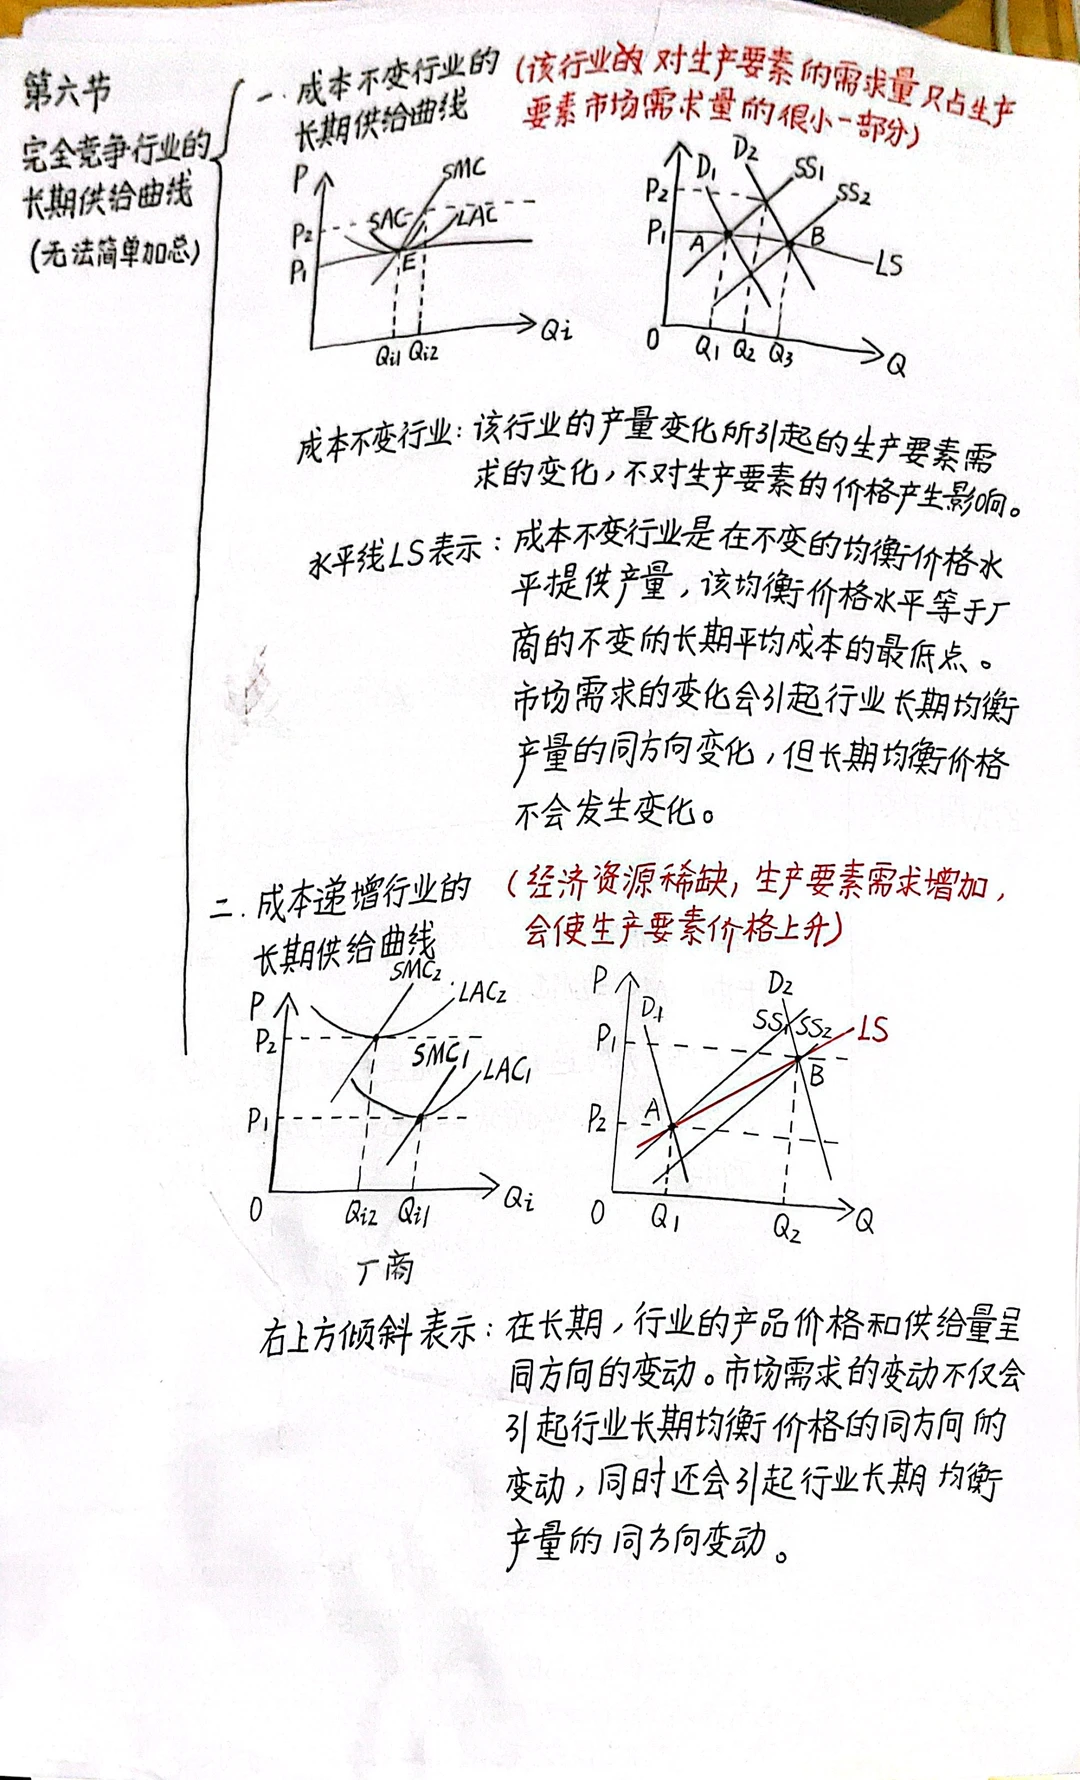 第六节
完全竞争行业的
长期供给曲线
(无法简单加总)
一.成本不变行业的
长期供给曲线
(该行业的对生产要素的需求量只占生产
要素市场需求量的很小一部分)
P
SMC
SAC
LAC
P2
P1
E
Qi1 Qi2
Qi
D1
D2
SS1
SS2
P2
P1
A
B
LS
O
Q1 Q2 Q3
Q
成本不变行业:该行业的产量变化所引起的生产要素需
求的变化,不对生产要素的价格产生影响。
水平线LS表示:成本不变行业是在不变的均衡价格水
平提供产量,该均衡价格水平等于厂
商的不变的长期平均成本的最低点。
市场需求的变化会引起行业长期均衡
产量的同方向变化,但长期均衡价格
不会发生变化。
二.成本递增行业的
长期供给曲线
(经济资源稀缺,生产要素需求增加,
会使生产要素价格上升)
P
SMC2
LAC2
P2
SMC1
LAC1
P1
O
Qi2 Qi1
Qi
厂商
P
D1
D2
SS1 SS2
LS
P1
B
P2
A
O
Q1
Q2
Q
右上方倾斜表示:在长期,行业的产品价格和供给量呈
同方向的变动。市场需求的变动不仅会
引起行业长期均衡价格的同方向的
变动,同时还会引起行业长期均衡
产量的同方向变动。